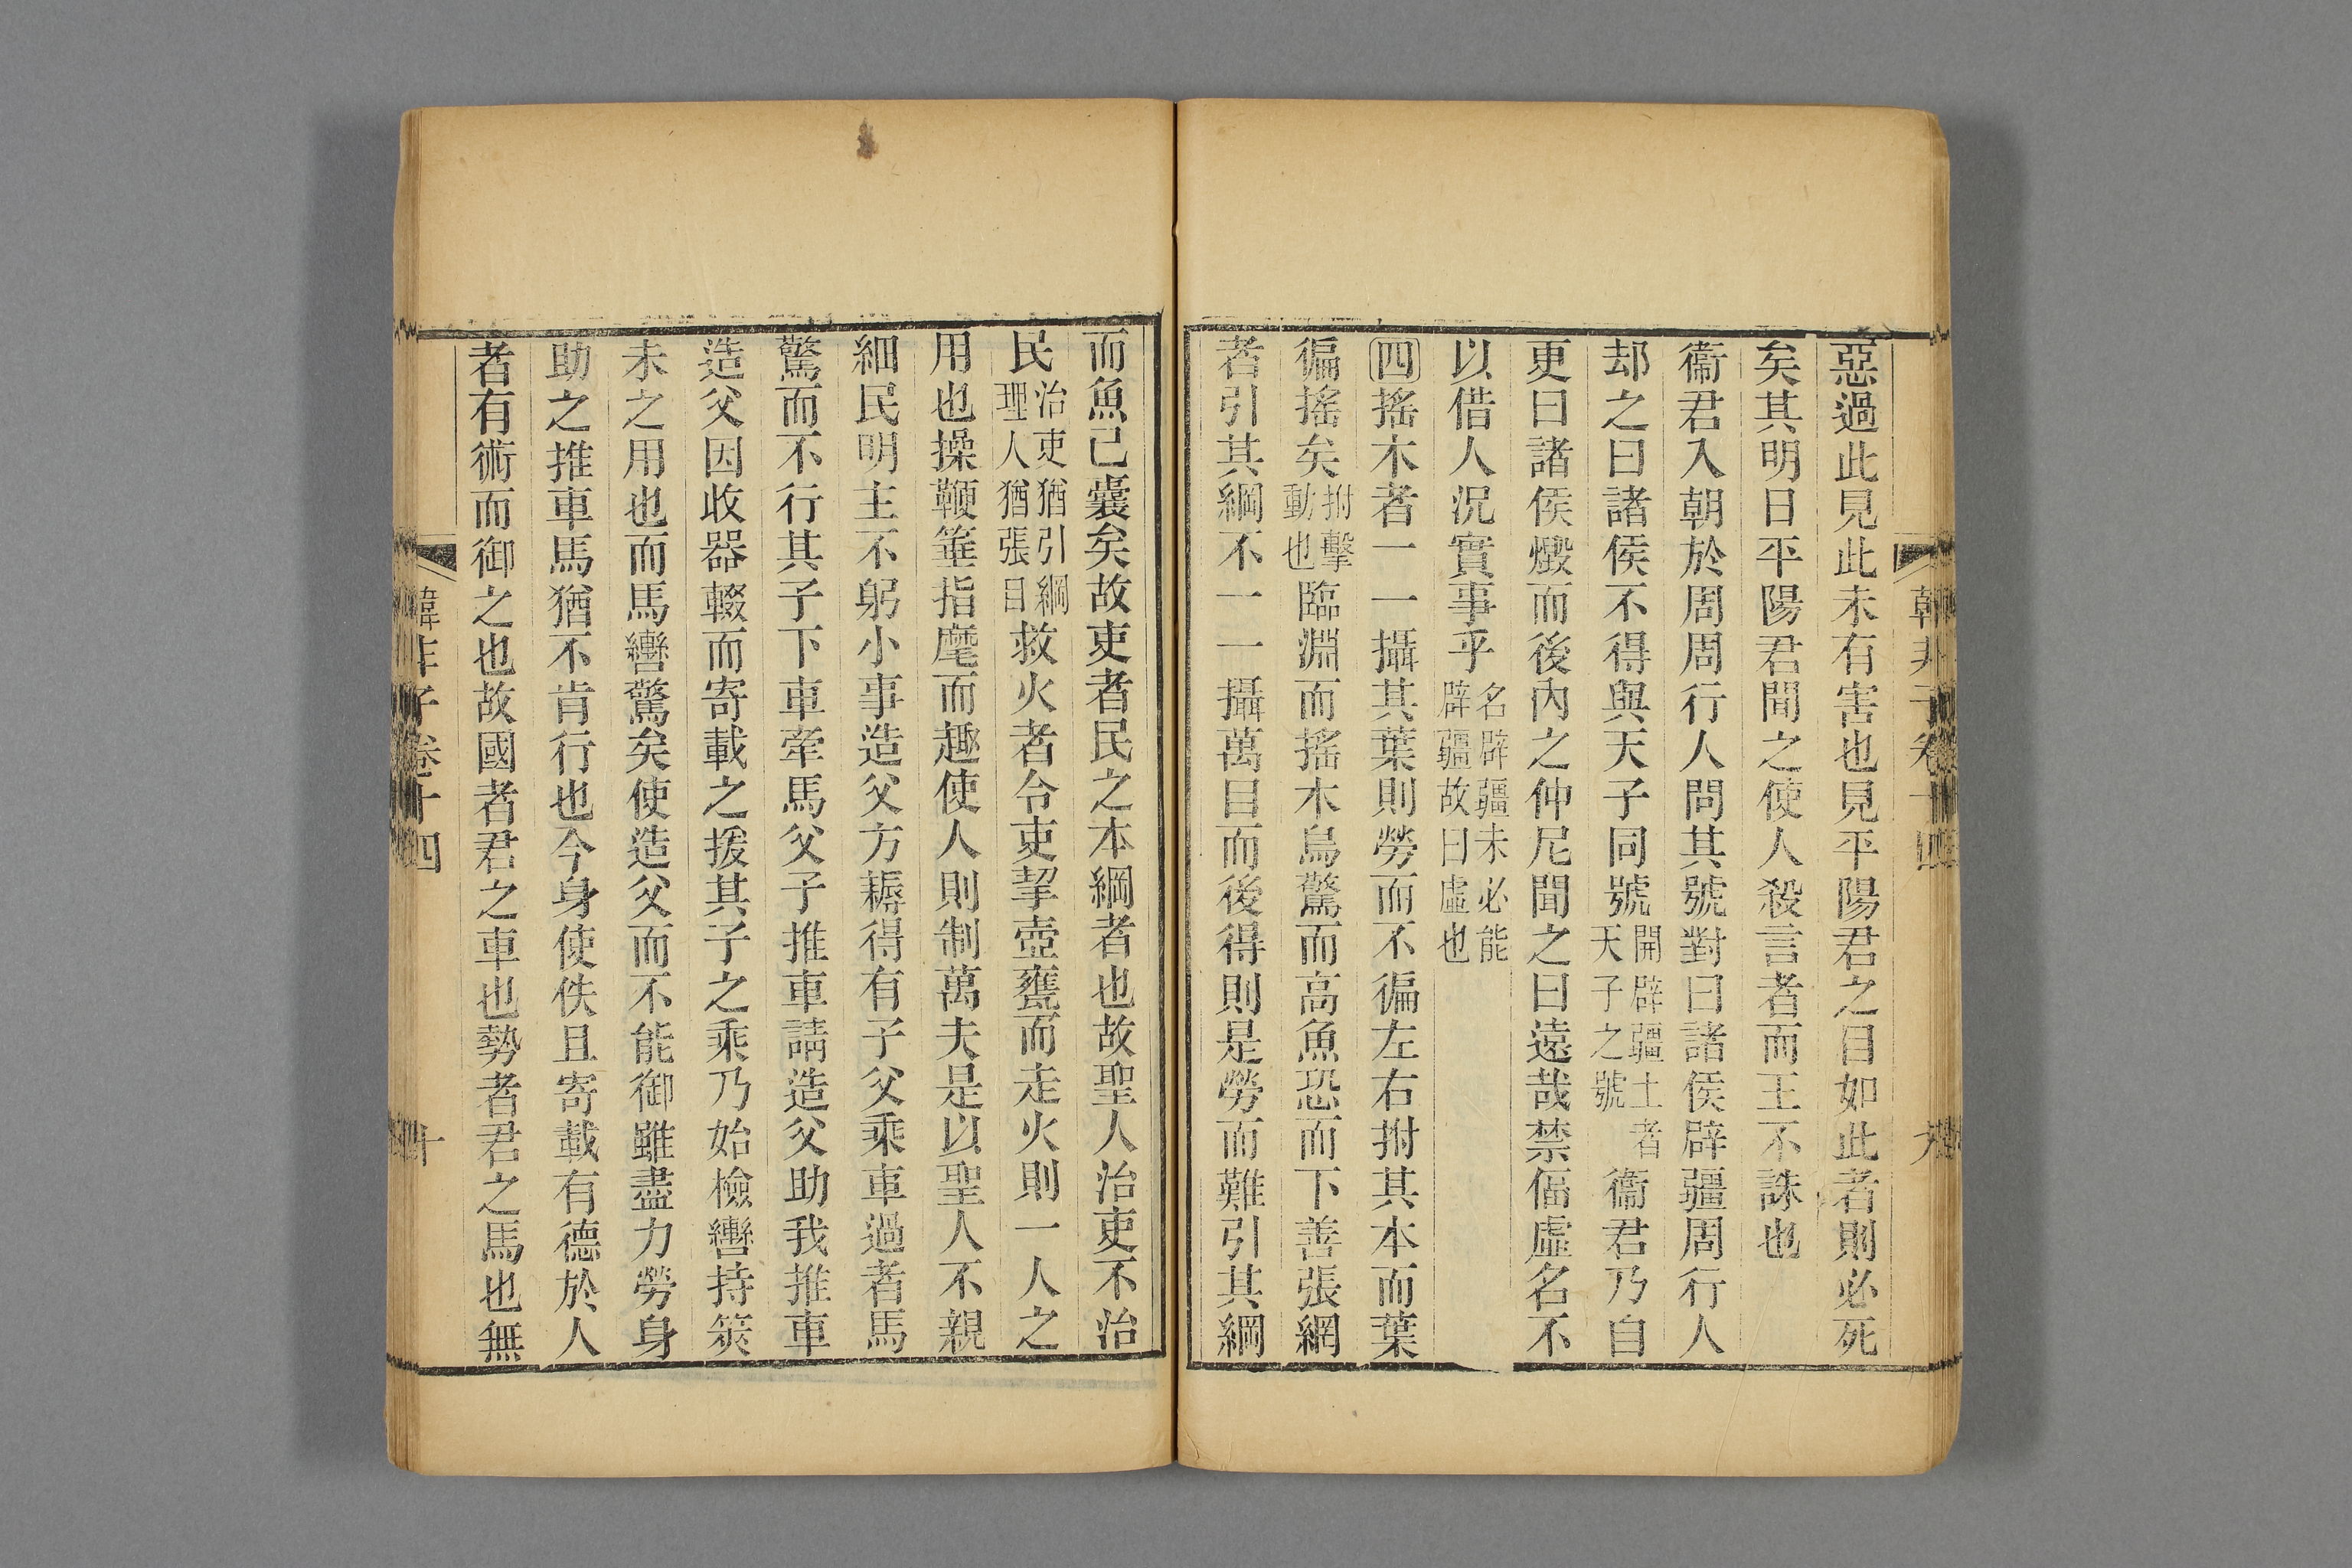 韓非子卷十四
惡過此見此未有害也見平陽君之目如此者則必死
矣其明日平陽君聞之使人殺言者而王不誅也
衞君入朝於周周行人問其號對曰諸侯辟疆周行人
却之曰諸侯不得與天子同號開辟疆土者天子之號衞君乃自
更曰諸侯燬而後內之仲尼聞之曰遠哉禁偪虛名不
以借人況實事乎名辟疆未必能辟疆故曰虛也
四搖木者一一攝其葉則勞而不徧左右拊其本而葉
徧搖矣拊擊動也臨淵而搖木鳥驚而高魚恐而下善張網
者引其綱不一一攝萬目而後得則是勞而難引其綱
而魚已囊矣故吏者民之本綱者也故聖人治吏不治
民治吏猶引綱理人猶張目救火者令吏挈壺甕而走火則一人之
用也操鞭箠指麾而趣使人則制萬夫是以聖人不親
細民明主不躬小事造父方耨得有子父乘車過者馬
驚而不行其子下車牽馬父子推車請造父助我推車
造父因收器輟而寄載之援其子之乘乃始檢轡持筴
未之用也而馬轡驚矣使造父而不能御雖盡力勞身
助之推車馬猶不肯行也今身使佚且寄載有德於人
者有術而御之也故國者君之車也勢者君之馬也無
韓非子卷十四
十